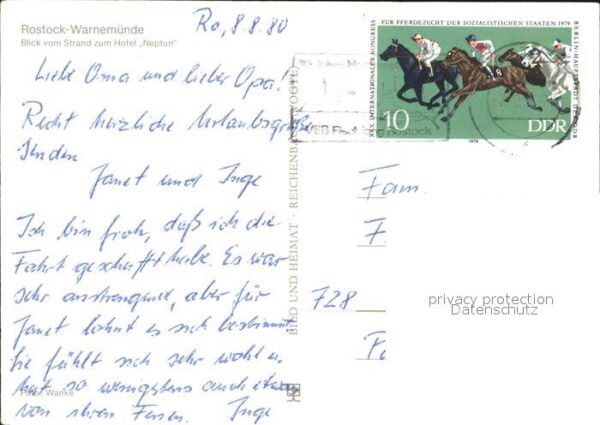 Rostock-Warnemünde
Blick vom Strand zum Hotel „Neptun"
Ro, 8.8.80
Liebe Oma und lieber Opa.
Recht herzliche Urlaubsgrüße
senden
Janet und Inge
Ich bin froh, daß ich die
Fahrt geschafft habe. Es war
sehr anstrengend, aber für
Janet lohnt es sich bestimmt
Sie fühlt sich sehr wohl u.
hat so wenigstens auch etwas
von ihren Ferien. Inge
Foto: Wanke
BILD UND HEIMAT · REICHENBACH
XXX. INTERNATIONALER KONGRESS
FÜR PFERDEZUCHT DER SOZIALISTISCHEN STAATEN 1979
BERLIN-HAUPTSTADT DER DDR
10
DDR
1979
8
Rostock
Fam.
F
728
privacy protection
Datenschutz